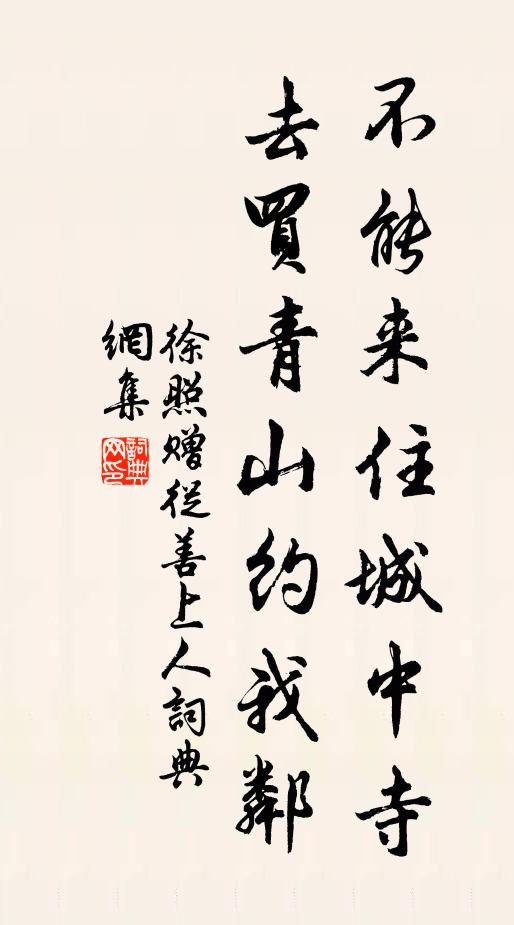 不能来住城中寺
去買青山約我鄰
徐照贈從善上人詞典
網集
詞典網印